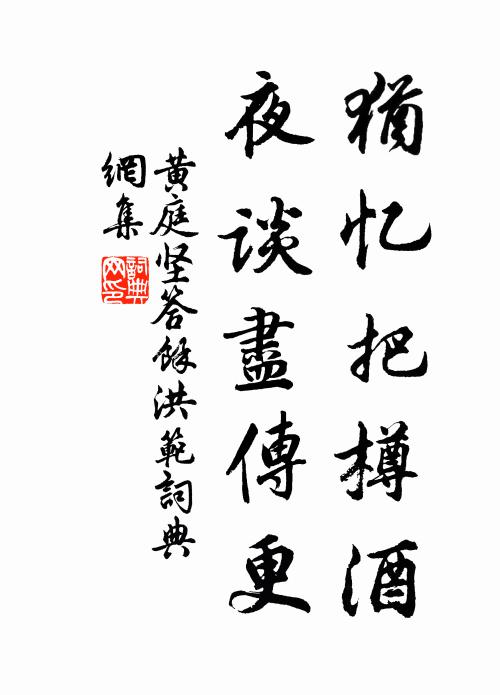 猶忆把樽酒
夜谈盡傳更
黄庭坚答餘洪範詞典
網集
詞典
网印